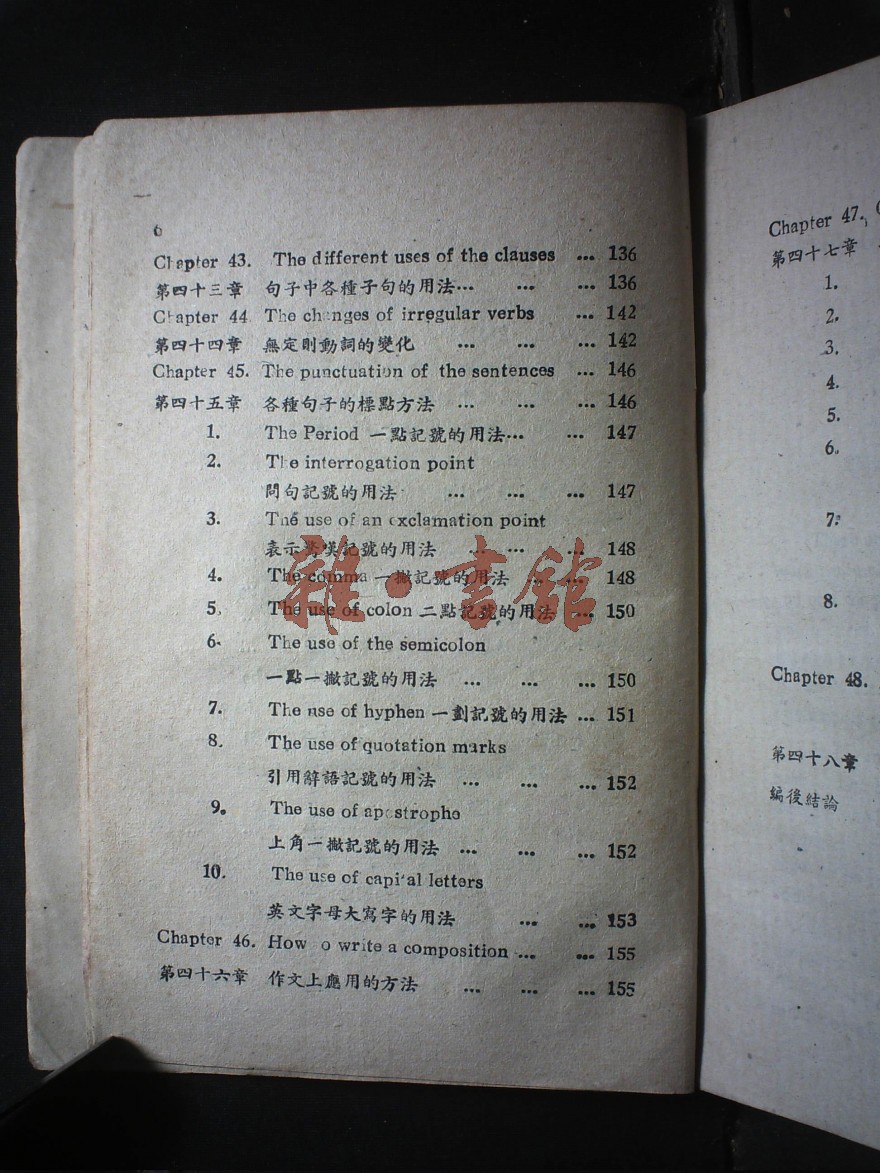 6
Chapter 43. The different uses of the clauses ... 136
第四十三章 句子中各種子句的用法... ... ... 136
Chapter 44 The changes of irregular verbs ... 142
第四十四章 無定則動詞的變化 ... ... ... 142
Chapter 45. The punctuation of the sentences ... 146
第四十五章 各種句子的標點方法 ... ... ... 146
1. The Period 一點記號的用法... ... 147
2. The interrogation point
問句記號的用法 ... ... ... 147
3. The use of an exclamation point
表示驚嘆記號的用法 ... ... ... 148
4. The comma 一撇記號的用法 ... ... 148
5. The use of colon 二點記號的用法 ... 150
6. The use of the semicolon
一點一撇記號的用法 ... ... ... 150
7. The use of hyphen 一劃記號的用法 ... 151
8. The use of quotation marks
引用辭語記號的用法 ... ... ... 152
9. The use of apostrophe
上角一撇記號的用法 ... ... ... 152
10. The use of capital letters
英文字母大寫字的用法 ... ... 153
Chapter 46. How o write a composition ... ... 155
第四十六章 作文上應用的方法 ... ... ... 155
雜·書館
Chapter 47.
第四十七章
1.
2.
3.
4.
5.
6.
7.
8.
Chapter 48.
第四十八章
編後結論